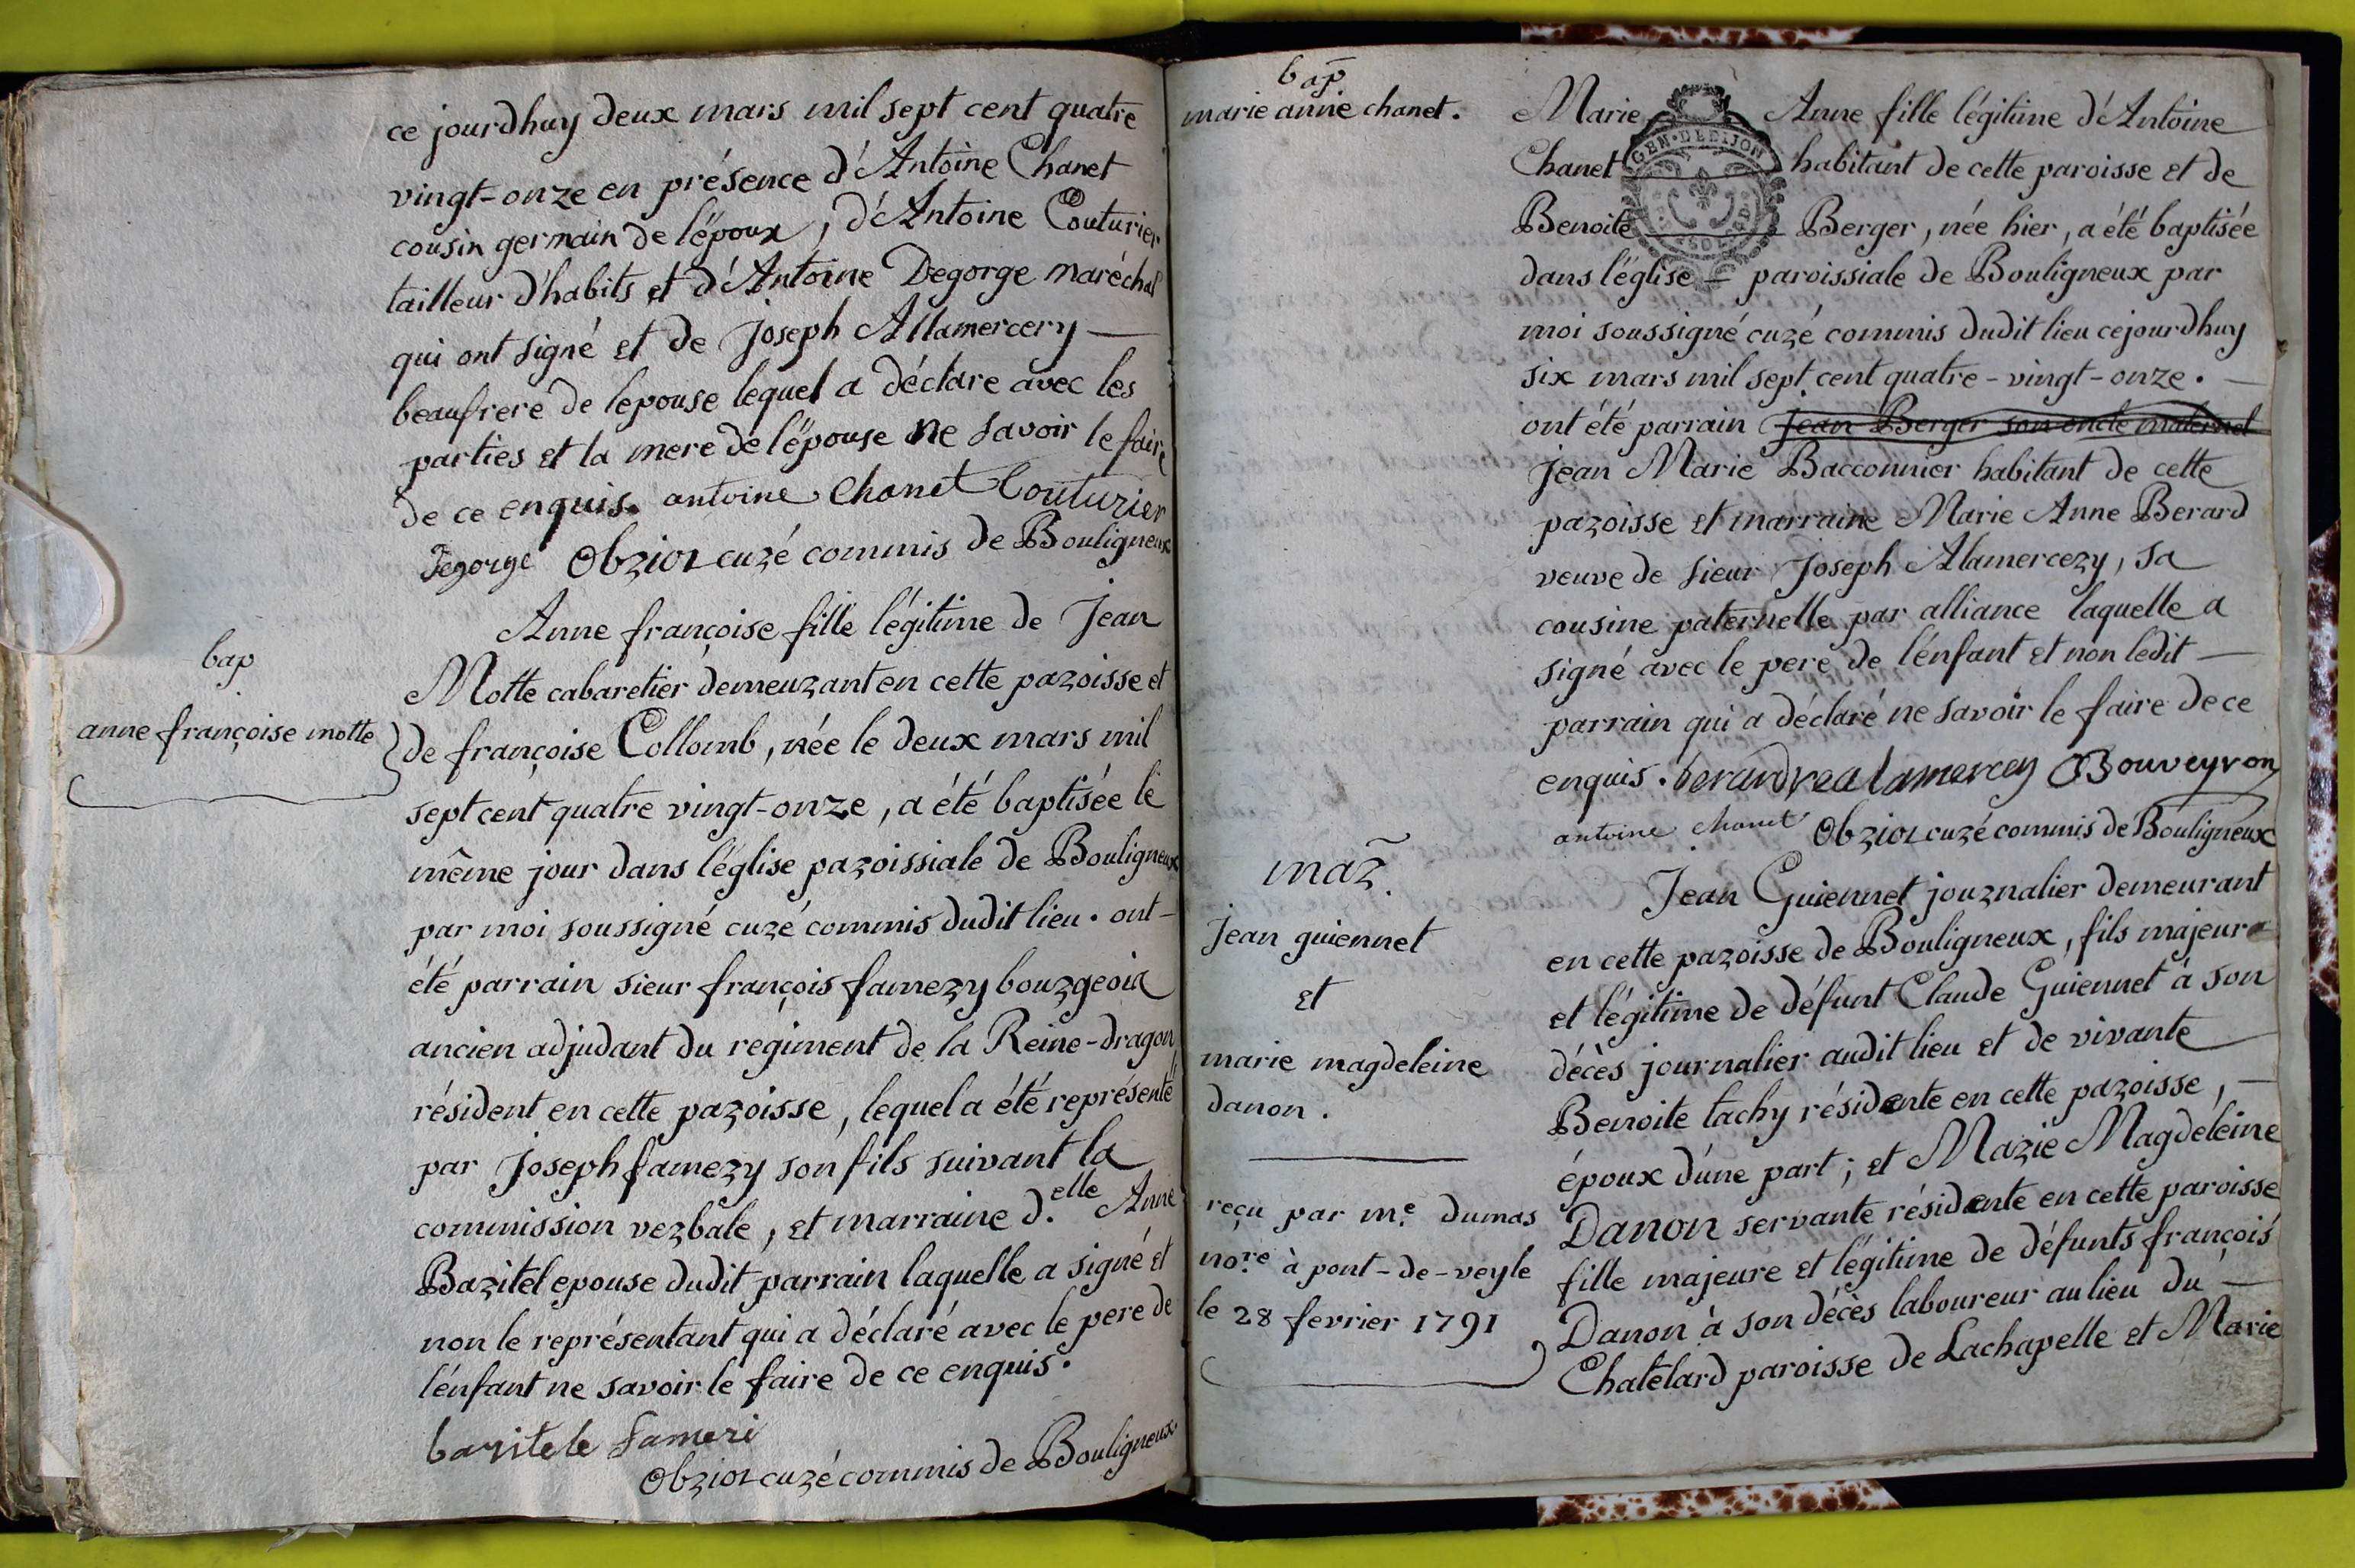 ce jourdhuy deux mars mil sept cent quatre
vingt-onze en présence d'Antoine Chanet
cousin germain de l'époux, d'Antoine Couturier
tailleur d'habits et d'Antoine Degorge maréchal
qui ont signé et de Joseph Allamercery
beaufrere de lepouse lequel a déclare avec les
parties et la mere de l'épouse ne savoir le faire
de ce enquis. antoine Chanet Couturier
Degorge Obrior curé commis de Bouligneux
bap
anne françoise motte
Anne françoise fille légitime de Jean
Motte cabaretier demeurant en cette paroisse et
de françoise Collomb, née le deux mars mil
sept cent quatre vingt-onze, a été baptisée le
même jour dans l'église paroissiale de Bouligneux
par moi soussigné curé commis dudit lieu. ont-
été parrain sieur françois famery bourgeois
ancien adjudant du regiment de la Reine-dragon
résident en cette paroisse, lequel a été représenté
par Joseph famery son fils suivant la
commission verbale, et marraine d.elle Anne
Baritel epouse dudit parrain laquelle a signé et
non le représentant qui a déclaré avec le pere de
l'énfant ne savoir le faire de ce enquis.
baritele fameri
Obrior curé commis de Bouligneux
bap
marie anne chanet.
Marie Anne fille légitime d'Antoine
GEN. DE DIJON
Chanet habitant de cette paroisse et de
Benoite Berger, née hier, a été baptisée
dans l'église paroissiale de Bouligneux par
moi soussigné curé commis dudit lieu cejourdhuy
six mars mil sept cent quatre-vingt-onze.
ont été parrain Jean Berger son oncle maternel
Jean Marie Bacconnier habitant de cette
paroisse et marraine Marie Anne Berard
veuve de sieur Joseph Alamercery, sa
cousine paternelle par alliance laquelle a
signé avec le pere de l'énfant et non ledit
parrain qui a déclaré ne savoir le faire de ce
enquis. Bouveyron
antoine chanet Obrior curé commis de Bouligneux
mar.
Jean guiennet
et
marie magdeleine
danon.
reçu par me. dumas
no.re à pont-de-veyle
le 28 fevrier 1791
Jean Guiennet journalier demeurant
en cette paroisse de Bouligneux, fils majeur
et légitime de défunt Claude Guiennet à son
décès journalier audit lieu et de vivante
Benoite tachy résidente en cette paroisse,
époux d'une part; et Marie Magdeleine
Danon servante résidente en cette paroisse
fille majeure et légitime de défunts françois
Danon à son décès laboureur au lieu du
Chatelard paroisse de Lachapelle et Marie